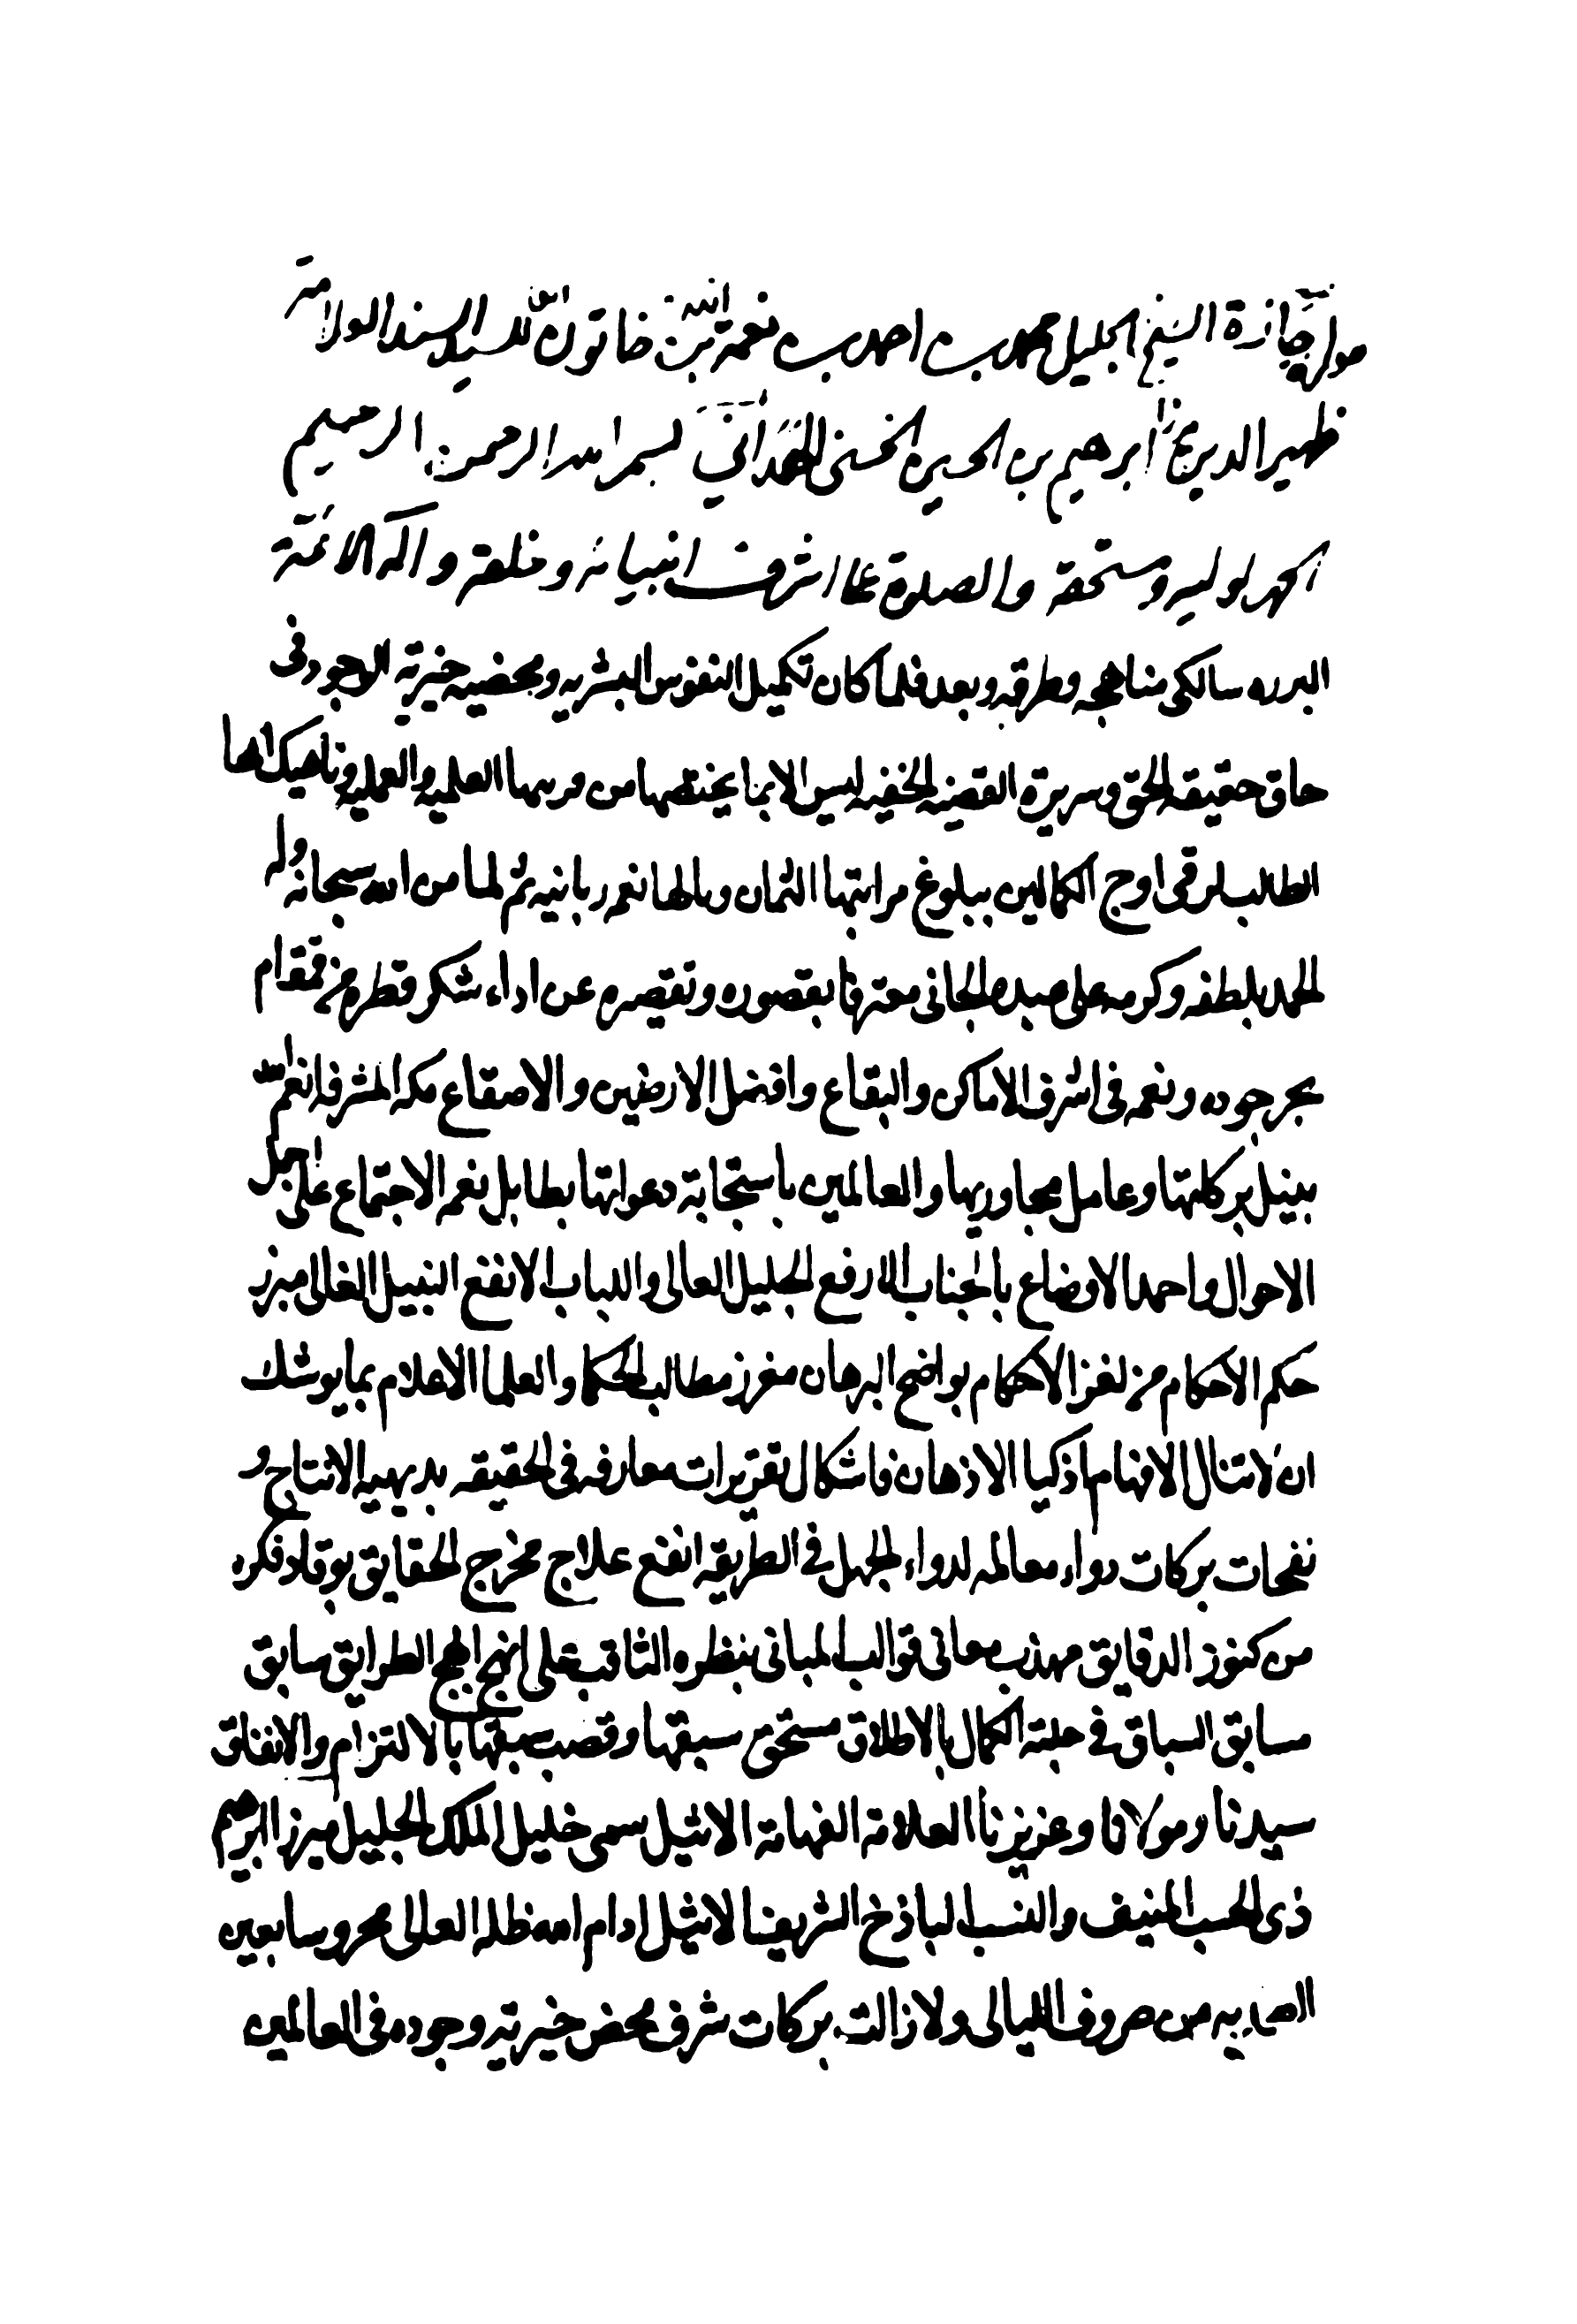 صورة اجازة الشيخ الجليل محمد بن احمد بن نعمة الله بن خاتون للسيد السند العلامة
ظهير الدين ميرزا ابرهيم بن الحسين الحسني الهمداني بسم الله الرحمن الرحيم
الحمد لوليه ومستحقه والصلوة على اشرف انبيائه وخلقه وآله الائمة
البرره سالكى مناهجه وطرقه وبعد فلما كان تكميل النفوس البشريه ومحضيه خيرية الوجود فى
حاق حقيقة الحق وسريرة القضيه الخفيه ليس الا بما يختصها من العلميه والعمليه وناهيك لها
الطالب لرقى اوج الكمالين ببلوغ مراتبها الثمان ربانيه ثم لما من الله سبحانه وله
الحمد بلطفه وكرمه على عبده الجانى معترفا بقصوره وتقصيره عن اداء شكر قطره من قمقام
بحر جوده ونعمه فى اشرف الاماكن والبقاع وافضل الارضين والاصقاع مكه المشرفه انعم الله
بنيل بركاتها وعامل مجاوريها والعالمين باستجابة دعواتها بطايل نعم الاجتماع على اجمل
الاحوال واحمد الاوضاع بالجناب الارفع الجليل العالى واللباب الانفع النبيل الغالى مبرز
حكم الاحكام من لغز الاحكام بواضح البرهان مغرز مطالب الحكما والعلما الاعلام بما يوشك
ان لا تنال الافهام اذكيا الاذهان فاشكال تقريرات معارفه فى الحقيقه بديهيه الانتاج و
نفحات بركات دواء معالمه لدواء الجهل فى الطريقه انفع علاج مخرج الحقايق بوقاد فكره
من كنوز الدقايق مهذب معانى قوالب المبانى بنظره الثاقب على انهج ابهج الطرايق سابق
مسابق السباق فى حلبة الكمال بالاطلاق مستحق سبقها وقصب سبقها بالالتزام والاتفاق
سيدنا ومولانا وعزيزنا العلامة الفهامة الاثيل سمى خليل الملك الجليل ميرزا ابرهيم
ذى الحسب المنيف والنسب الباذخ الشريف الاثيل ادام الله ظله العالى محروسا بعين
الصمديه من صروف الليالى ولا زالت بركات شرف محض خيرية وجوده فى العالمين